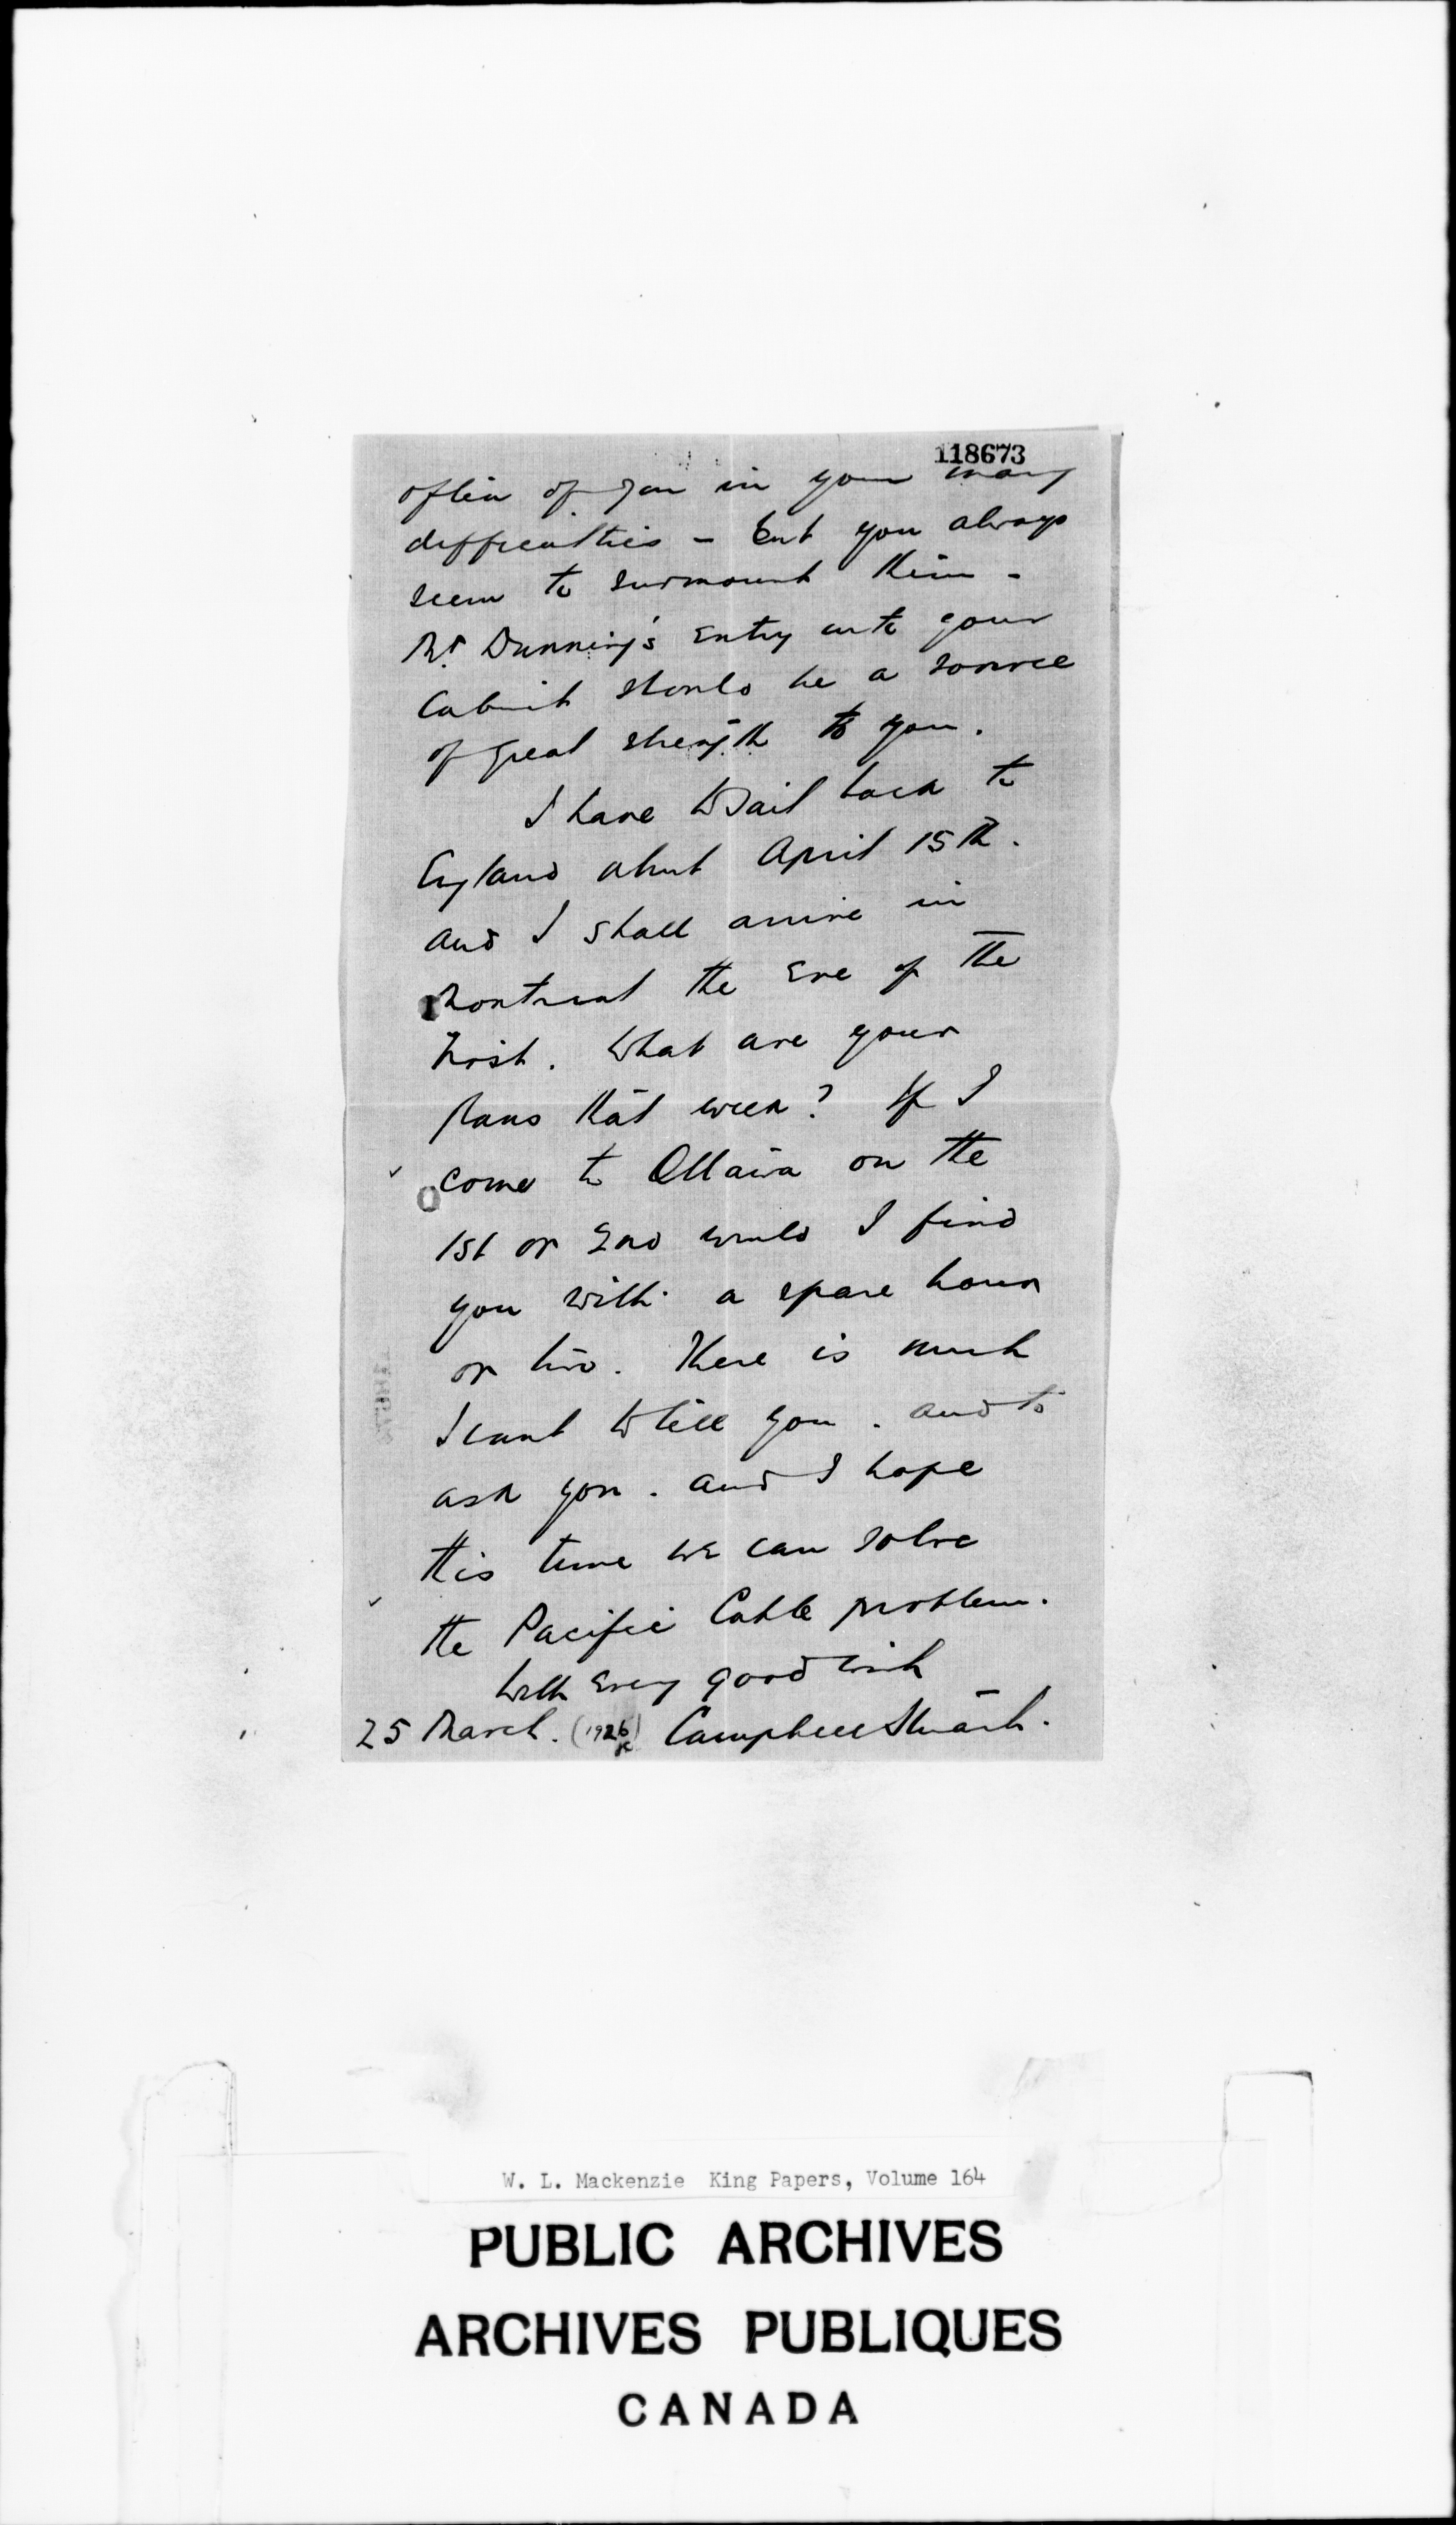 118673
often of you in your many
difficulties - but you always
seem to surmount them -
Mr. Dunning's entry into your
Cabinet should be a source
of great strength to you.
I have to sail back to
England about April 15th.
and I shall arrive in
Montreal the eve of the
first. What are your
plans that week? If I
come to Ottawa on the
1st or 2nd would I find
you with a spare hour
or two. There is much
I want to tell you. and to
ask you. and I hope
this time we can solve
the Pacific Cable problem.
With every good wish
25 March. (1926) Campbell Stuart.
W. L. Mackenzie King Papers, Volume 164
PUBLIC ARCHIVES
ARCHIVES PUBLIQUES
CANADA